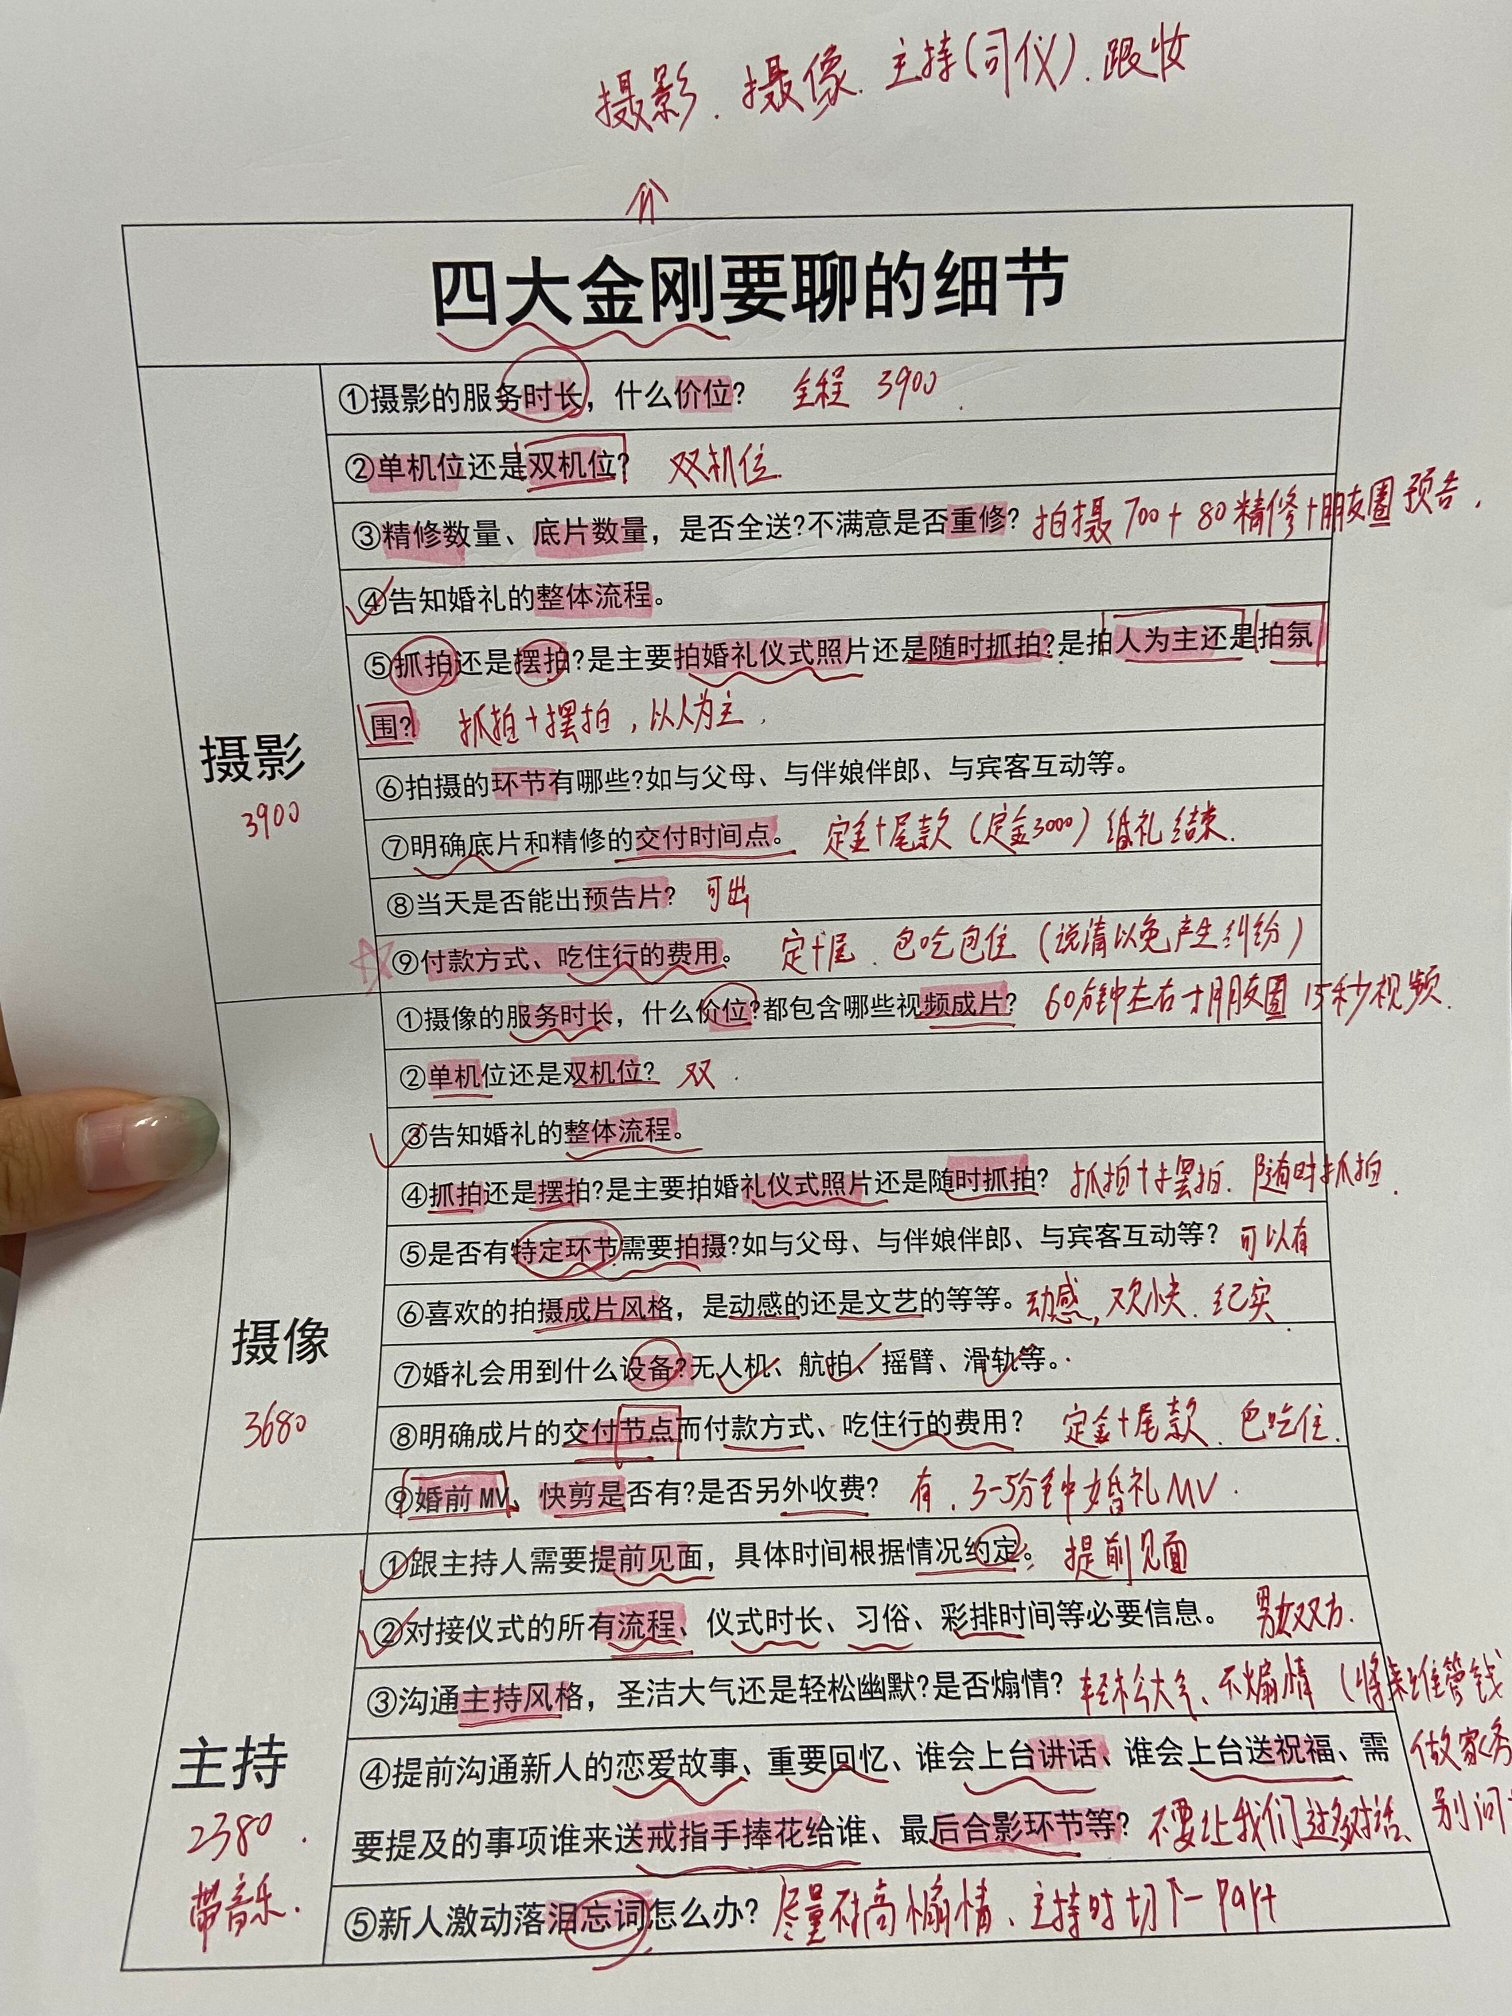 摄影、摄像、主持(司仪)、跟妆
四大金刚要聊的细节
摄影
3900
①摄影的服务时长，什么价位? 全程 3900.
②单机位还是双机位? 双机位.
③精修数量、底片数量，是否全送?不满意是否重修? 拍摄700+80精修+朋友圈预告.
④告知婚礼的整体流程。
⑤抓拍还是摆拍?是主要拍婚礼仪式照片还是随时抓拍?是拍人为主还是拍氛
围? 抓拍+摆拍，以人为主.
⑥拍摄的环节有哪些?如与父母、与伴娘伴郎、与宾客互动等。
⑦明确底片和精修的交付时间点。 定金+尾款(定金3000)婚礼结束.
⑧当天是否能出预告片? 可出
⑨付款方式、吃住行的费用。 定+尾、包吃包住(说清以免产生纠纷)
摄像
3680
①摄像的服务时长，什么价位?都包含哪些视频成片? 60分钟左右+朋友圈15秒视频.
②单机位还是双机位? 双.
③告知婚礼的整体流程。
④抓拍还是摆拍?是主要拍婚礼仪式照片还是随时抓拍? 抓拍+摆拍、随时抓拍.
⑤是否有特定环节需要拍摄?如与父母、与伴娘伴郎、与宾客互动等? 可以有
⑥喜欢的拍摄成片风格，是动感的还是文艺的等等。 动感、欢快、纪实.
⑦婚礼会用到什么设备?无人机、航拍、摇臂、滑轨等。
⑧明确成片的交付节点而付款方式、吃住行的费用? 定金+尾款、包吃住.
⑨婚前MV、快剪是否有?是否另外收费? 有、3-5分钟婚礼MV.
主持
2380.
带音乐.
①跟主持人需要提前见面，具体时间根据情况约定。 提前见面
②对接仪式的所有流程、仪式时长、习俗、彩排时间等必要信息。 男女双方.
③沟通主持风格，圣洁大气还是轻松幽默?是否煽情? 轻松大气、不煽情(将来谁管钱
做家务
别问
④提前沟通新人的恋爱故事、重要回忆、谁会上台讲话、谁会上台送祝福、需
要提及的事项谁来送戒指手捧花给谁、最后合影环节等? 不要让我们过多对话、
⑤新人激动落泪忘词怎么办? 尽量不搞煽情、主持时切下一Part